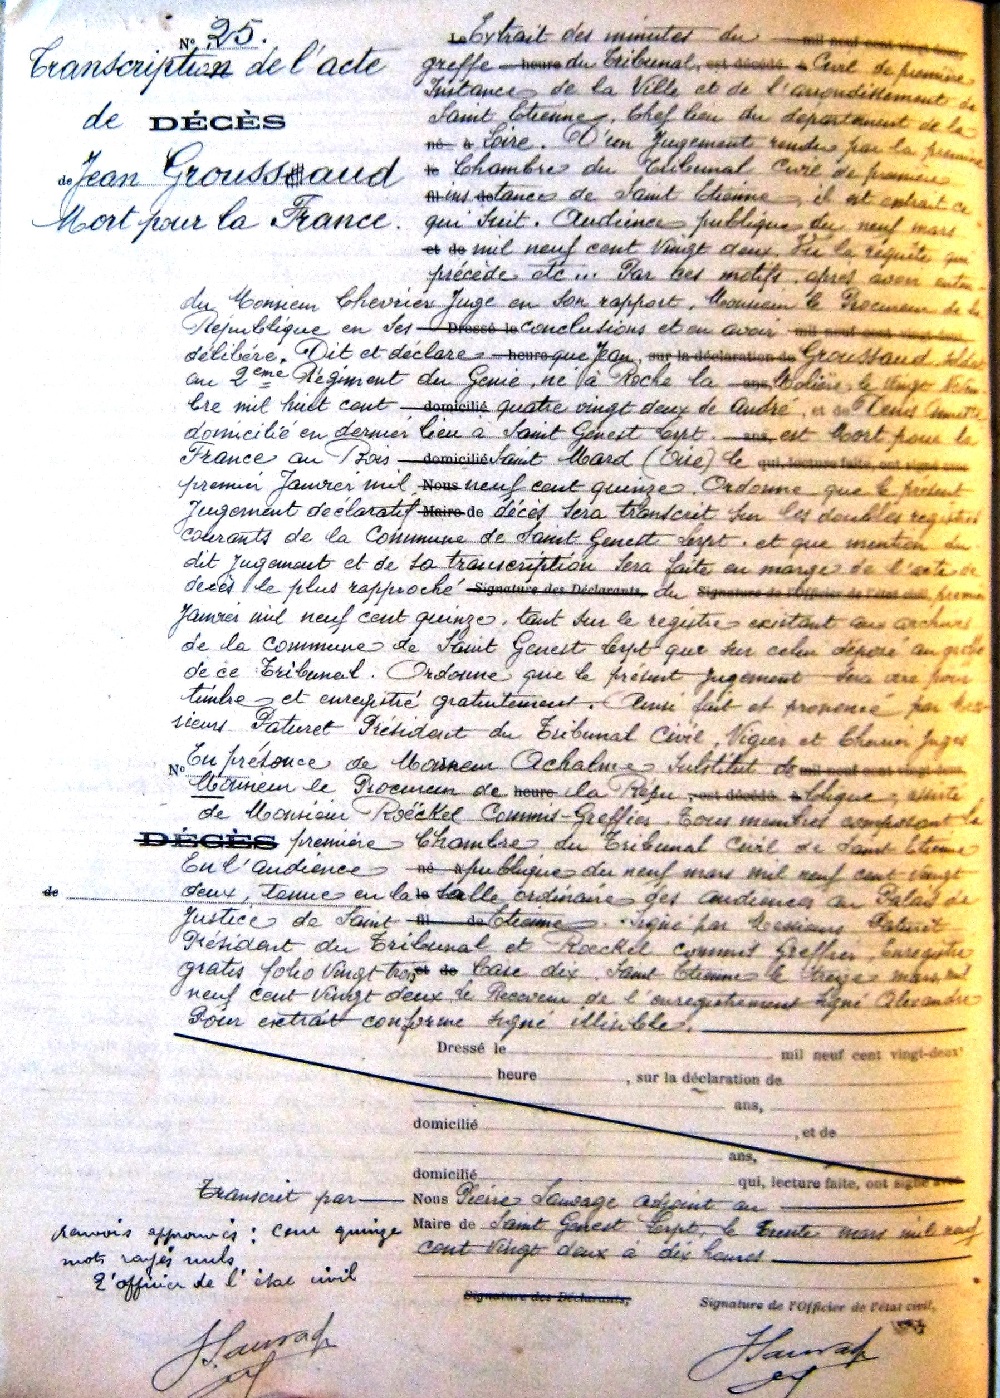 N° 25.
Transcription de l'acte
de DÉCÈS
de Jean Groussaud
Mort pour la France.
Le Extrait des minutes du mil neuf cent vingt-deux
greffe heure du Tribunal, est décédé à Civil de première
Instance de la Ville et de l'arrondissement de
Saint Etienne, Chef lieu du département de la
né à Loire. D'un Jugement rendu par la première
le Chambre du Tribunal Civil de première
fil ins de tance de Saint Etienne, il est extrait ce
qui suit. Audience publique du neuf mars
et de mil neuf cent vingt deux. Vu la requête qui
précède etc... Par ces motifs, après avoir enten-
du Monsieur Chevrier Juge en son rapport, Monsieur le Procureur de la
République en ses Dressé le conclusions et en avoir mil neuf cent vingt-deux
délibéré. Dit et déclare heure que Jean, sur la déclaration de Groussaud soldat
au 2eme Régiment du Génie, né à Roche la ans, Molière, le vingt
bre mil huit cent domicilié quatre vingt deux de André, et de Denis
domicilié en dernier lieu à Saint Genest Lerpt. ans, est Mort pour la
France au Bois domicilié Saint Mard (Oise) le qui, lecture faite, ont signé avec
premier Janvier mil Nous neuf cent quinze. Ordonne que le présent
Jugement déclaratif Maire de décès sera transcrit sur les doubles registres
courants de la Commune de Saint Genest Lerpt. et que mention du
dit Jugement et de sa transcription sera faite en marge de l'acte de
décès le plus rapproché Signature des Déclarants, du Signature de l'Officier de l'état civil, premier
Janvier mil neuf cent quinze, tant sur le registre existant aux archives
de la commune de Saint Genest Lerpt que sur celui déposé au greffe
de ce Tribunal. Ordonne que le présent Jugement sera visé pour
timbre et enregistré gratuitement. Ainsi fait et prononcé par Mes-
sieurs Paturet Président du Tribunal Civil, Vigier et Juges
N° En présence de Monsieur Achalme Substitut de mil neuf cent vingt-deux
Monsieur le Procureur de heure la Répu , est décédé à blique, assisté
de Monsieur Roëckel Commis-Greffier. Tous membres composant la
DÉCÈS première Chambre du Tribunal Civil de Saint Etienne
En l'audience né à publique du neuf mars mil neuf cent vingt
de deux, tenue en la le salle ordinaire des audiences au Palais de
Justice de Saint fil de Etienne. Signé par Messieurs Paturet
Président du Tribunal et Roeckel commis Greffier, Enregistré
gratis folio vingt trois et de Case dix. Saint Etienne le treize mars mil
neuf cent vingt deux le Receveur de l'enregistrement signé Alexandre
Pour extrait conforme signé illisible.
Dressé le mil neuf cent vingt-deux
heure , sur la déclaration de
ans,
domicilié , et de
ans,
domicilié qui, lecture faite, ont signé avec
Transcrit par Nous Pierre Sauvage adjoint au
Maire de Saint Genest Lerpt, le trente mars mil neuf
cent vingt deux à dix heures
renvois approuvés : cent quinze
mots rayés nuls
L'officier de l'état civil
Signature des Déclarants,
Signature de l'Officier de l'état civil,